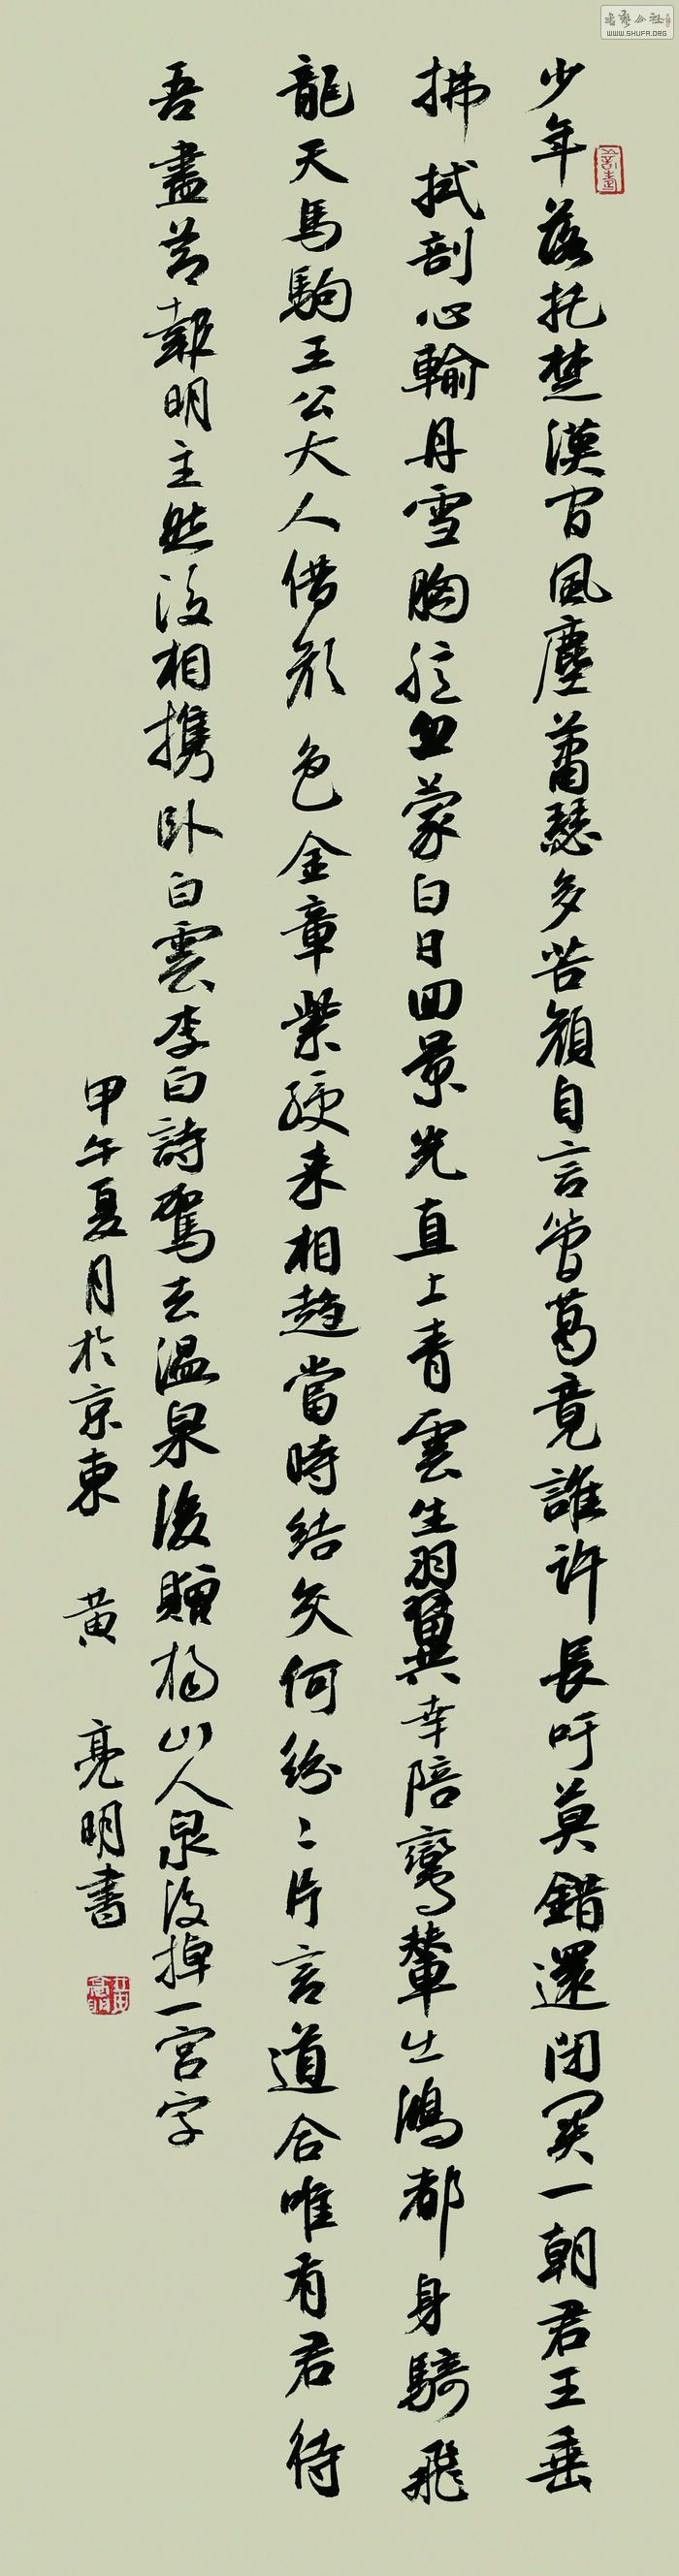 少年落托楚漢間風塵蕭瑟多苦顏自言管葛竟誰許長吁莫錯還閉關一朝君王垂
拂拭剖心輸丹雪胸臆忽蒙白日回景光直上青雲生羽翼幸陪鸞輦出鴻都身騎飛
龍天馬駒王公大人借顏色金章紫綬来相趨當時結交何紛〻片言道合唯有君待
吾盡節報明主然後相攜臥白雲李白詩駕去溫泉後贈楊山人泉後掉一宮字
甲午夏月於京東 黃亮明書
書藝公社
WWW.SHUFA.ORG